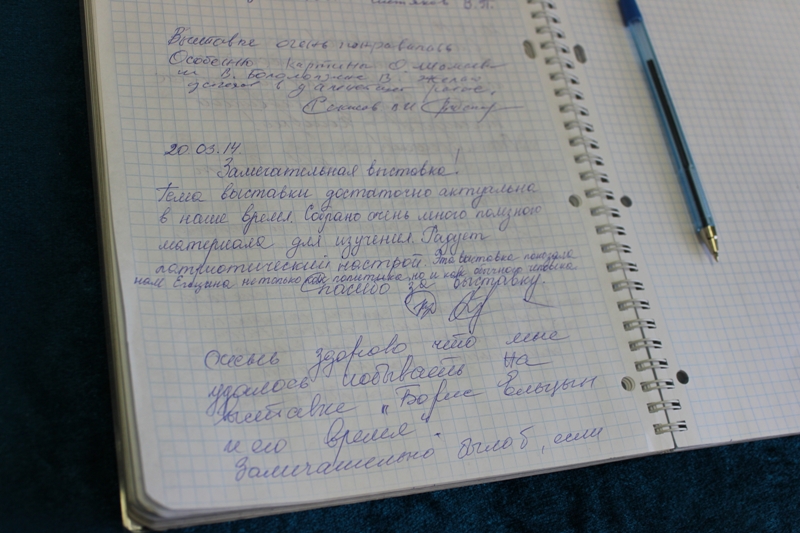 В.П.
Выставка очень понравилась
Особенно картина
и С. в
в
20.03.14
Замечательная выставка!
Тема выставки достаточно актуальна
в наше время. Собрано очень много полезного
материала для изучения. Радует
патриотический настрой. Эта выставка показала
нам Ельцина не только как политика, но и как обычного человека.
Спасибо за выставку.
Очень здорово что мне
удалось побывать на
выставке „Борис Ельцын
и его время".
Замичательно былоб, если